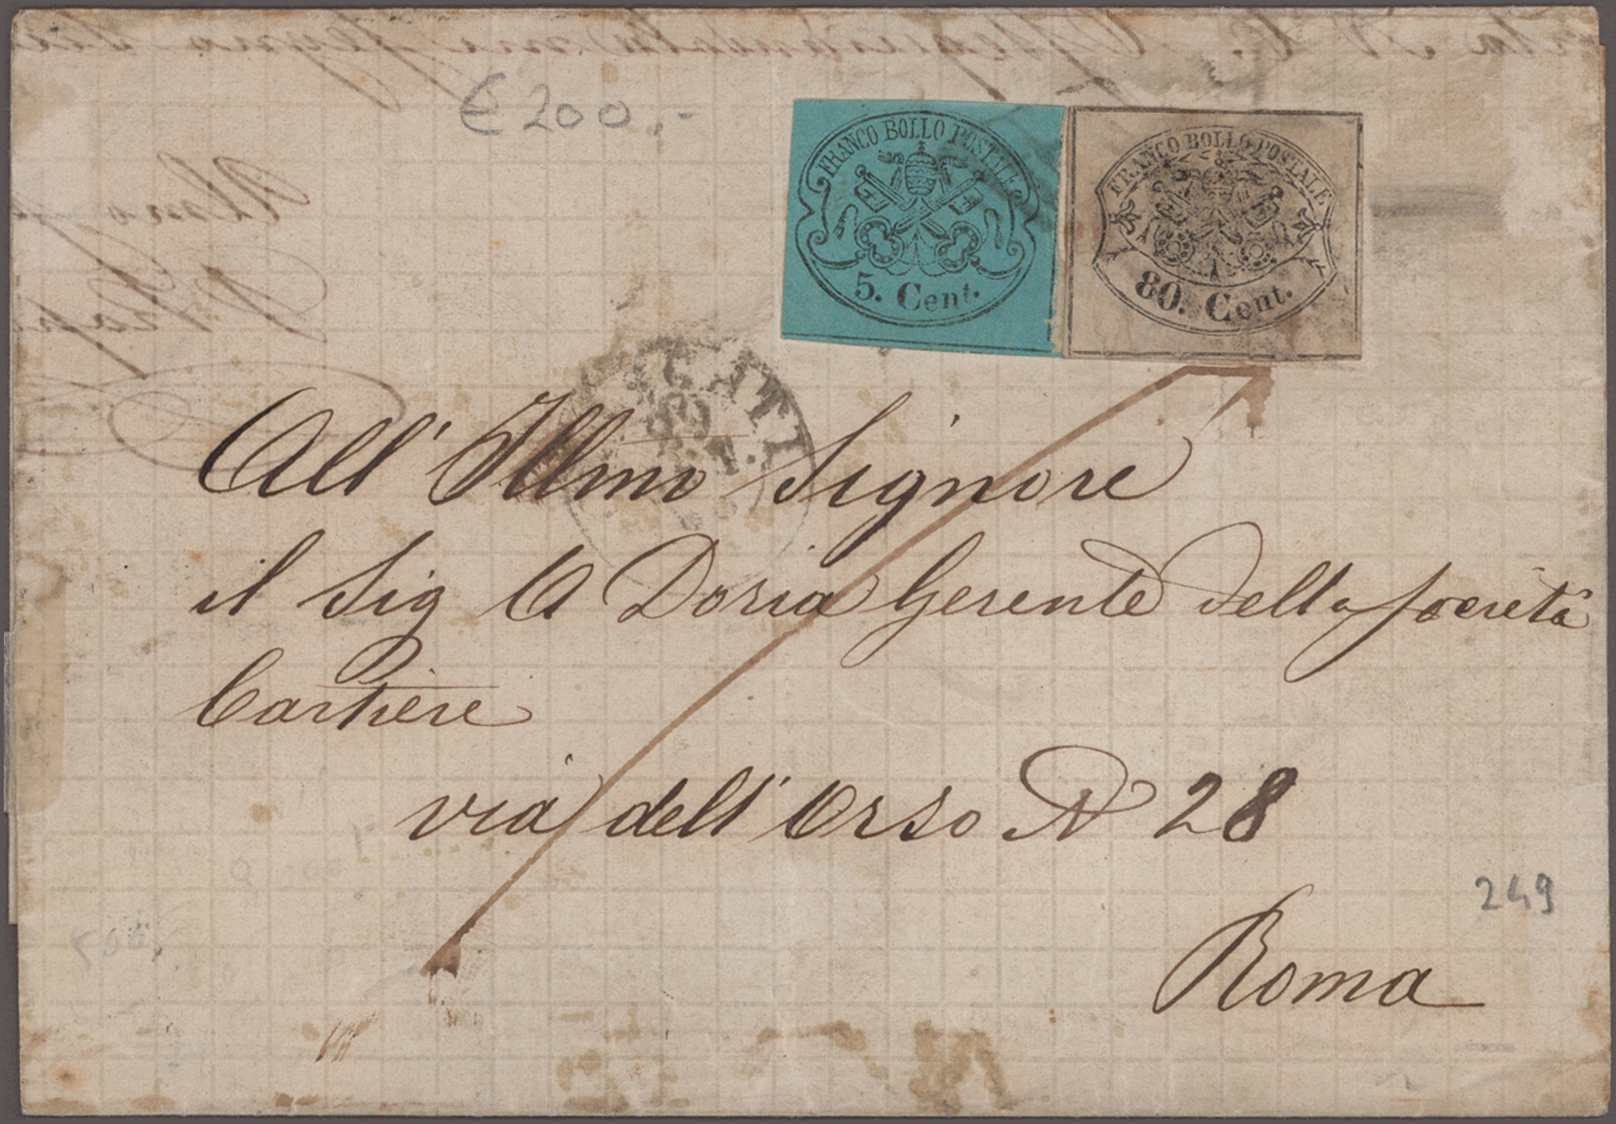 € 200.-
FRANCO BOLLO POSTALE
5. Cent.
FRANCO BOLLO POSTALE
80. Cent.
All' Illmo Signore
il Sig A Doria Gerente della Società
Cartiere
via dell' Orso N 28
249
Roma